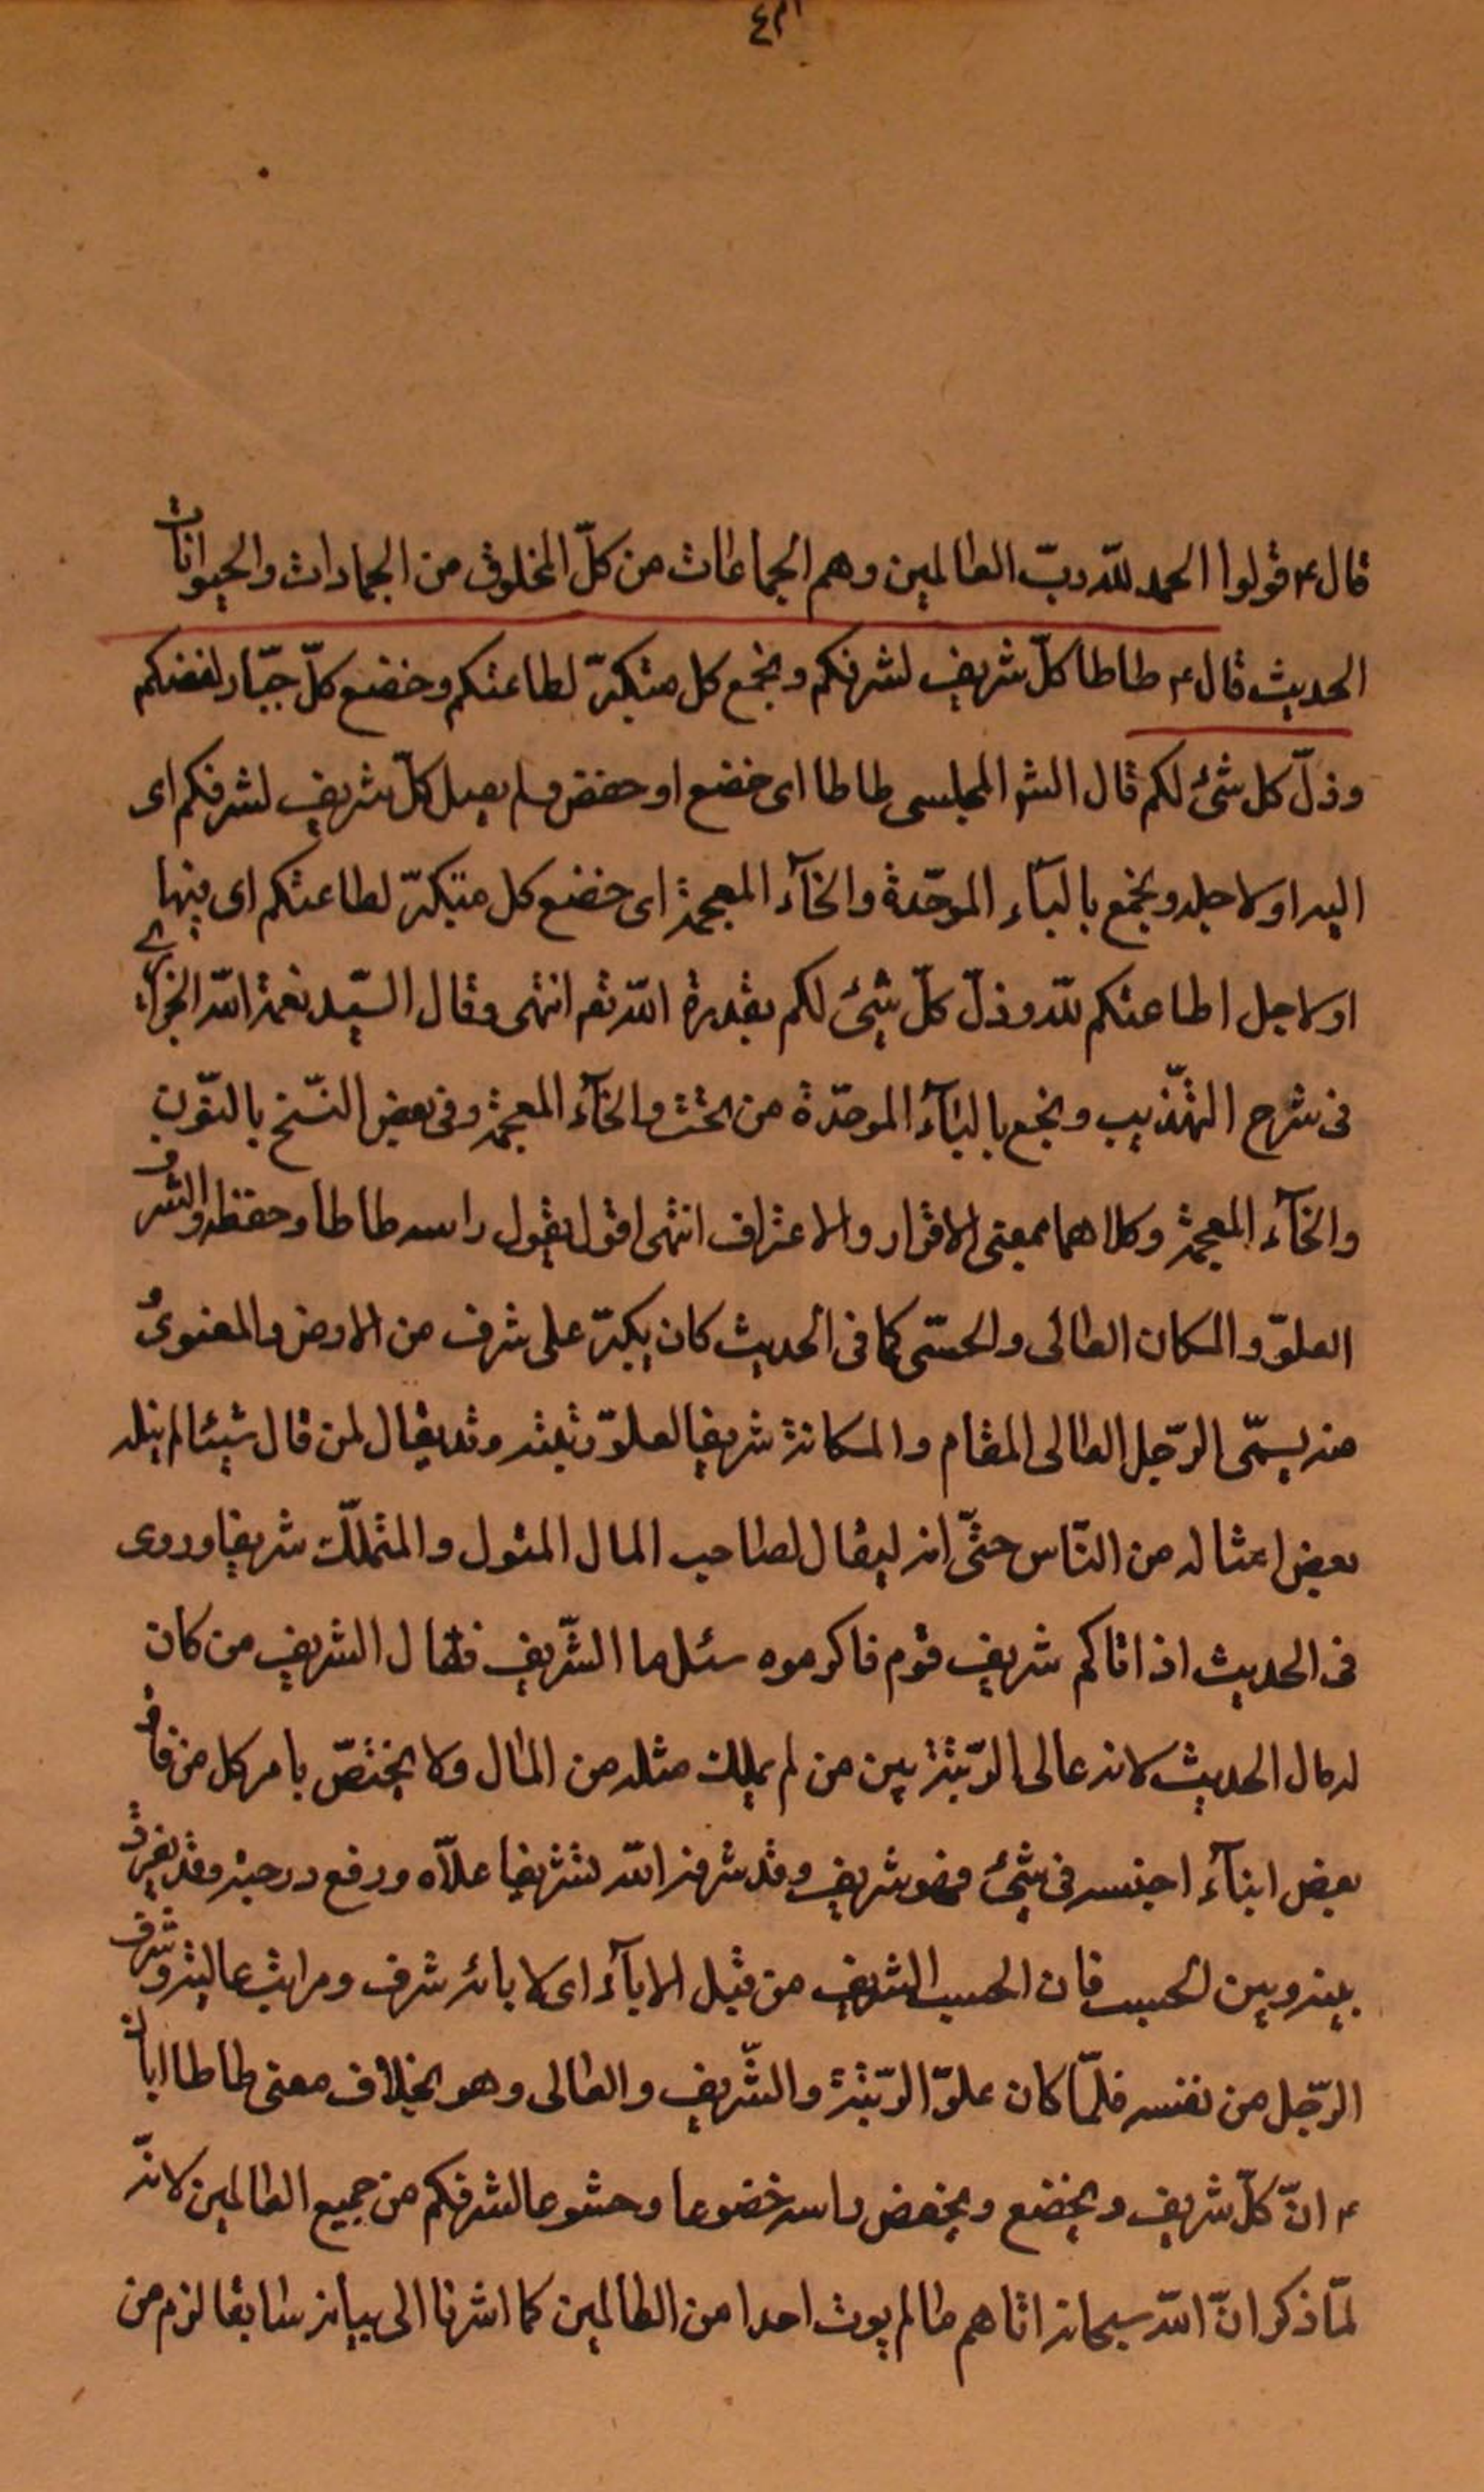 قال ع قولوا الحمد لله ربّ العالمين وهم الجماعات من كلّ المخلوق من الجمادات والحيوانات
الحديث قال ع طاطا كلّ شريف لشرفكم وبخع كل متكبّر لطاعتكم وخضع كلّ جبّار لفضلكم
وذلّ كل شئ لكم قال المجلسى طاطا اى خضع او خفض كلّ شريف لشرفكم اى
اليه او لاجله وبخع بالبآء الموحّدة والخآء المعجمة اى خضع كل متكبّر لطاعتكم اى فيها
او لاجل اطاعتكم لله وذلّ كلّ شئ لكم بقدرة الله تع انتهى وقال السّيد نعمة الله الجزآئرى
فى شرح التهّذيب وبخع بالبآء الموحّدة من تحت والخآء المعجمة وفى بعض النّسخ بالنّون
والخآء المعجمة وكلاهما بمعنى الاقرار والاعتراف انتهى اقول يقول راسه طاطا وخفظه والشرف
العلوّ والمكان العالى والحسّى كما فى الحديث كان يكبّر على شرف من الارض والمعنوى
منه يسمّى الرّجل العالى المقام والمكانة شريفا لعلوّ رتبته وقد يقال لمن قال شيئا لم ينله
بعض امثاله من النّاس حتّى انه ليقال لصاحب المال المئول والمتملّك شريفا وروى
فى الحديث اذا اتاكم شريف قوم فاكرموه سئل ما الشّريف فقال الشريف من كان
له مال الحديث لانه عالى الرّتبة بين من لم يملك مثله من المال ولا يختصّ بامر كل من فاق
بعض ابنآء اجنسه فى شئ فهو شريف وقد شرفه الله تشريفا علّاه ورفع درجته وقد يفرق
بينه وبين الحسب فان الحسب الشريف من قبل الابآء اى لابائه شرف ومراتب عالية وشرف
الرّجل من نفسه فلمّا كان علوّ الرّتبة والشّريف والعالى وهو بخلاف معنى طاطا ابان
ع انّ كلّ شريف ويخضع ويخفض راسه خضوعا وخشوعا لشرفكم من جميع العالمين لانّه
لمّا ذكر انّ الله سبحانه اتاهم ما لم يوت احدا من العالمين كما اشرنا الى بيانه سابقا لزم من